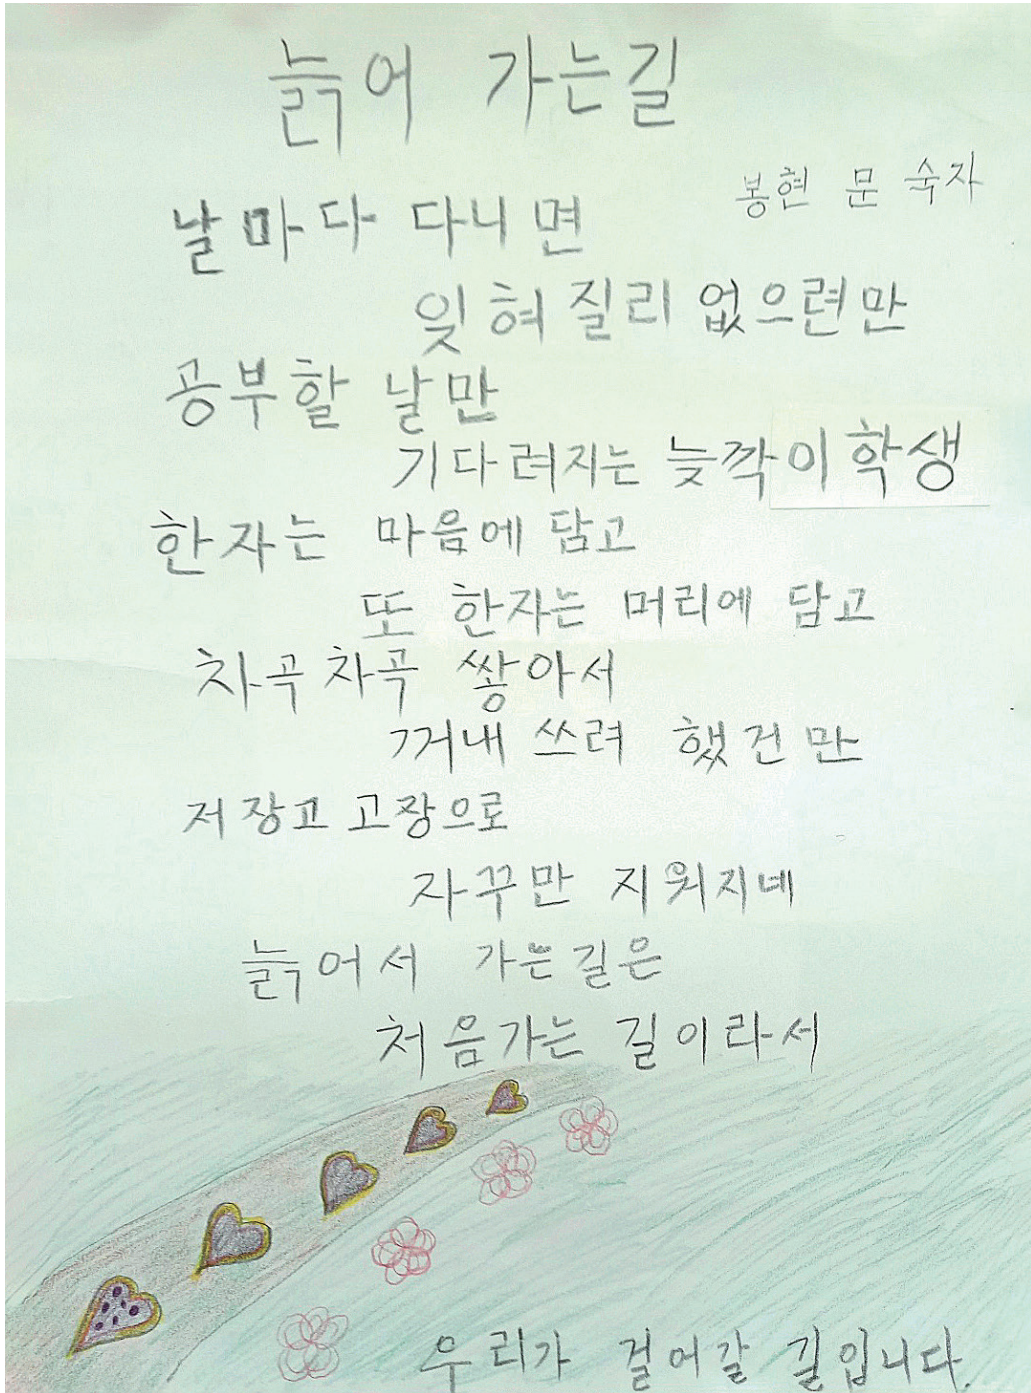 늙어 가는길
봉현 문 숙자
날마다 다니면
잊혀 질리 없으련만
공부할 날만
기다려지는 늦깍이학생
한자는 마음에 담고
또 한자는 머리에 담고
차곡차곡 쌓아서
꺼내 쓰려 했건만
저장고 고장으로
자꾸만 지워지네
늙어서 가는길은
처음가는 길이라서
우리가 걸어갈 길입니다.